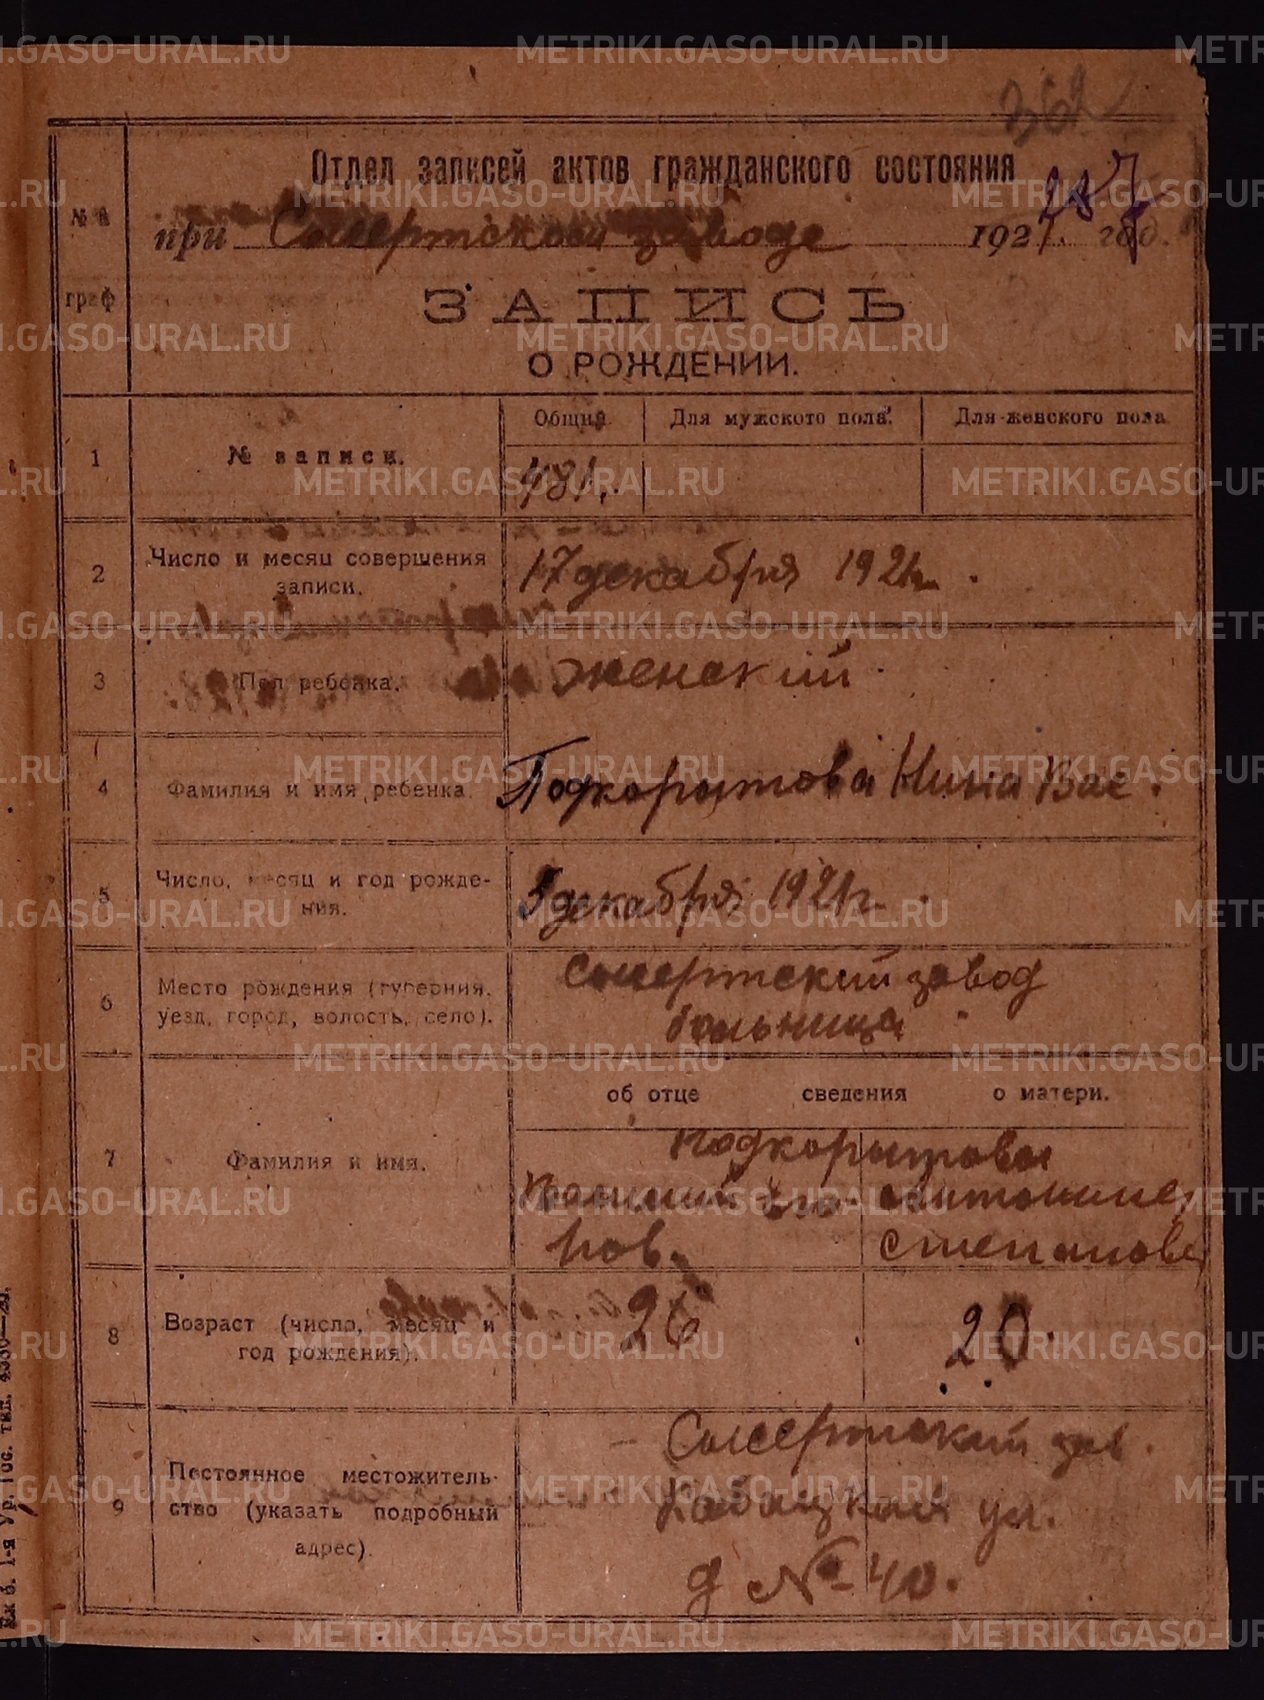 METRIKI.GASO-URAL.RU
362
Отдел записей актов гражданского состояния
287
№ №
граф
при Сысертском заводе 1921 год.
ЗАПИСЬ
О РОЖДЕНИИ.
1
№ записи.
Общий.
Для мужского пола.
Для женского пола
481.
2
Число и месяц совершения
записи.
17 декабря 1921 г.
3
Пол ребенка.
женский
4
Фамилия и имя ребенка.
Подкорытова Нина Вас.
5
Число, месяц и год рожде-
ния.
декабря 1921 г.
6
Место рождения (губерния,
уезд, город, волость, село).
Сысертский завод
больница
об отце сведения о матери.
7
Фамилия и имя.
Подкорытовы
Антонина
Степанова
8
Возраст (число, месяц и
год рождения).
26
20.
9
Постоянное местожитель-
ство (указать подробный
адрес).
Сысертский зав.
Кабацкая ул.
д № 40.